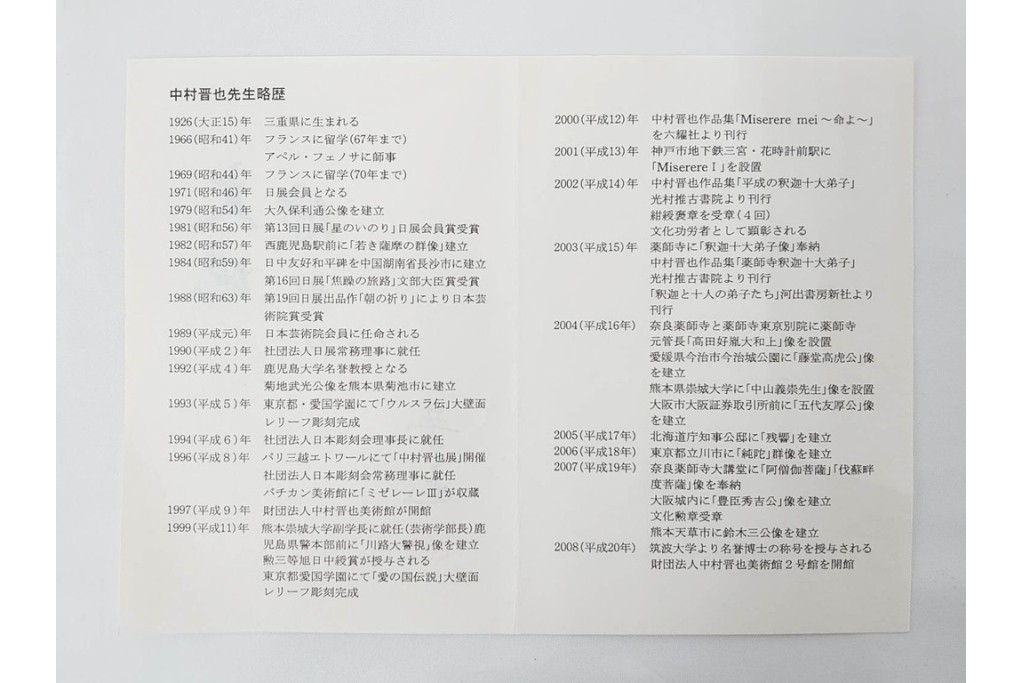 中村晋也先生略歴
1926(大正15)年 三重県に生まれる
1966(昭和41)年 フランスに留学(67年まで)
アペル・フェノサに師事
1969(昭和44)年 フランスに留学(70年まで)
1971(昭和46)年 日展会員となる
1979(昭和54)年 大久保利通公像を建立
1981(昭和56)年 第13回日展「星のいのり」日展会員賞受賞
1982(昭和57)年 西鹿児島駅前に「若き薩摩の群像」建立
1984(昭和59)年 日中友好和平碑を中国湖南省長沙市に建立
第16回日展「焦躁の旅路」文部大臣賞受賞
1988(昭和63)年 第19回日展出品作「朝の祈り」により日本芸
術院賞受賞
1989(平成元)年 日本芸術院会員に任命される
1990(平成2)年 社団法人日展常務理事に就任
1992(平成4)年 鹿児島大学名誉教授となる
菊地武光公像を熊本県菊池市に建立
1993(平成5)年 東京都・愛国学園にて「ウルスラ伝」大壁面
レリーフ彫刻完成
1994(平成6)年 社団法人日本彫刻会理事長に就任
1996(平成8)年 パリ三越エトワールにて「中村晋也展」開催
社団法人日本彫刻会常務理事に就任
バチカン美術館に「ミゼレーレⅢ」が収蔵
1997(平成9)年 財団法人中村晋也美術館が開館
1999(平成11)年 熊本崇城大学副学長に就任(芸術学部長)鹿
児島県警本部前に「川路大警視」像を建立
勲三等旭日中綬賞が授与される
東京都愛国学園にて「愛の国伝説」大壁面
レリーフ彫刻完成
2000(平成12)年 中村晋也作品集「Miserere mei～命よ～」
を六耀社より刊行
2001(平成13)年 神戸市地下鉄三宮・花時計前駅に
「MiserereⅠ」を設置
2002(平成14)年 中村晋也作品集「平成の釈迦十大弟子」
光村推古書院より刊行
紺綬褒章を受章(4回)
文化功労者として顕彰される
2003(平成15)年 薬師寺に「釈迦十大弟子像」奉納
中村晋也作品集「薬師寺釈迦十大弟子」
光村推古書院より刊行
「釈迦と十人の弟子たち」河出書房新社より
刊行
2004(平成16)年 奈良薬師寺と薬師寺東京別院に薬師寺
元管長「高田好胤大和上」像を設置
愛媛県今治市今治城公園に「藤堂高虎公」像
を建立
熊本県崇城大学に「中山義崇先生」像を設置
大阪市大阪証券取引所前に「五代友厚公」像
を建立
2005(平成17)年 北海道庁知事公邸に「残響」を建立
2006(平成18)年 東京都立川市に「純詑」群像を建立
2007(平成19)年 奈良薬師寺大講堂に「阿僧伽菩薩」「伐蘇畔
度菩薩」像を奉納
大阪城内に「豊臣秀吉公」像を建立
文化勲章受章
熊本天草市に鈴木三公像を建立
2008(平成20)年 筑波大学より名誉博士の称号を授与される
財団法人中村晋也美術館2号館を開館